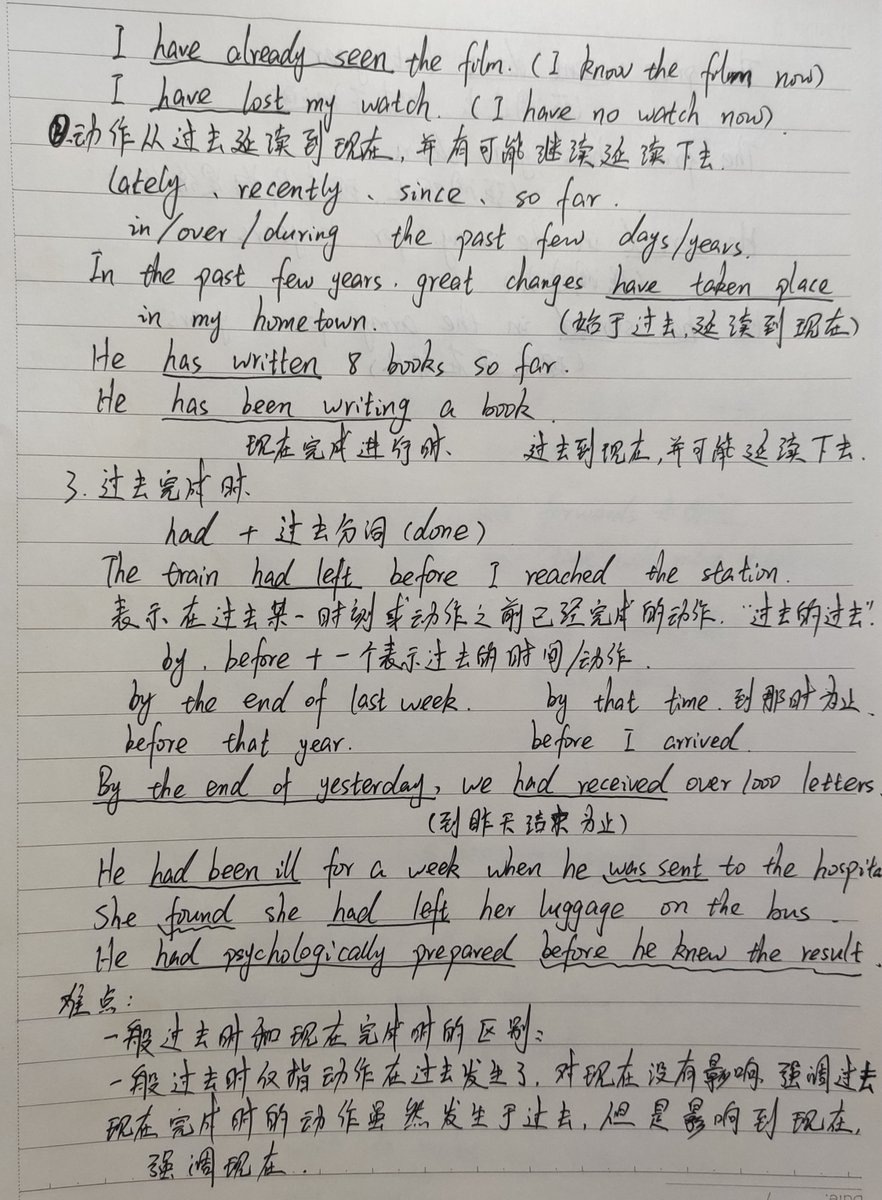 I have already seen the film. (I know the film now)
I have lost my watch. (I have no watch now).
②.动作从过去延续到现在,并有可能继续延续下去.
lately、recently、since、so far.
in/over/during the past few days/years.
In the past few years. great changes have taken place
in my hometown. (始于过去,延续到现在)
He has written 8 books so far.
He has been writing a book.
现在完成进行时、 过去到现在,并可能延续下去.
3. 过去完成时、
had + 过去分词 (done)
The train had left before I reached the station.
表示在过去某一时刻或动作之前已经完成的动作. "过去的过去".
by. before + 一个表示过去的时间/动作.
by the end of last week. by that time. 到那时为止.
before that year. before I arrived.
By the end of yesterday, we had received over 1000 letters.
(到昨天结束为止)
He had been ill for a week when he was sent to the hospita
She found she had left her luggage on the bus.
He had psychologically prepared before he knew the result.
难点:
一般过去时和现在完成时的区别:
一般过去时仅指动作在过去发生了,对现在没有影响. 强调过去
现在完成时的动作虽然发生于过去,但是影响到现在,
强调现在.